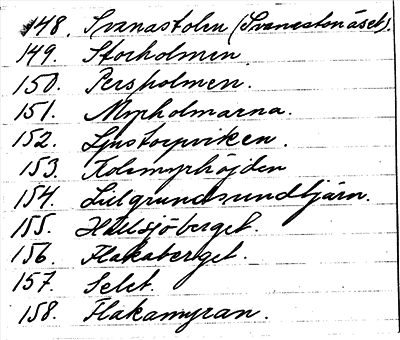 148. Svanastolen (Svanastonäset).
149. Storholmen
150. Persholmen.
151. Myrholmarna.
152. Ljustorpviken.
153. Kolamyrhöjden
154. Lillgrundsundtjärn.
155. Hälsjöberget.
156. Flakaberget.
157. Selet.
158. Flakamyran.